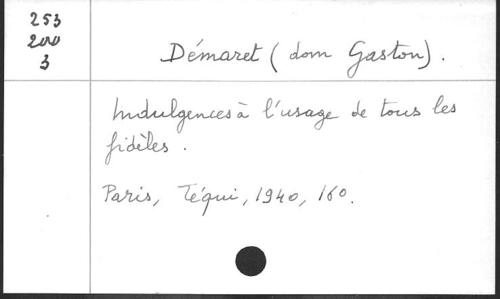 253
200
3
Démaret (dom Gaston).
Indulgences à l'usage de tous les
fidèles.
Paris, Téqui, 1940, 160.